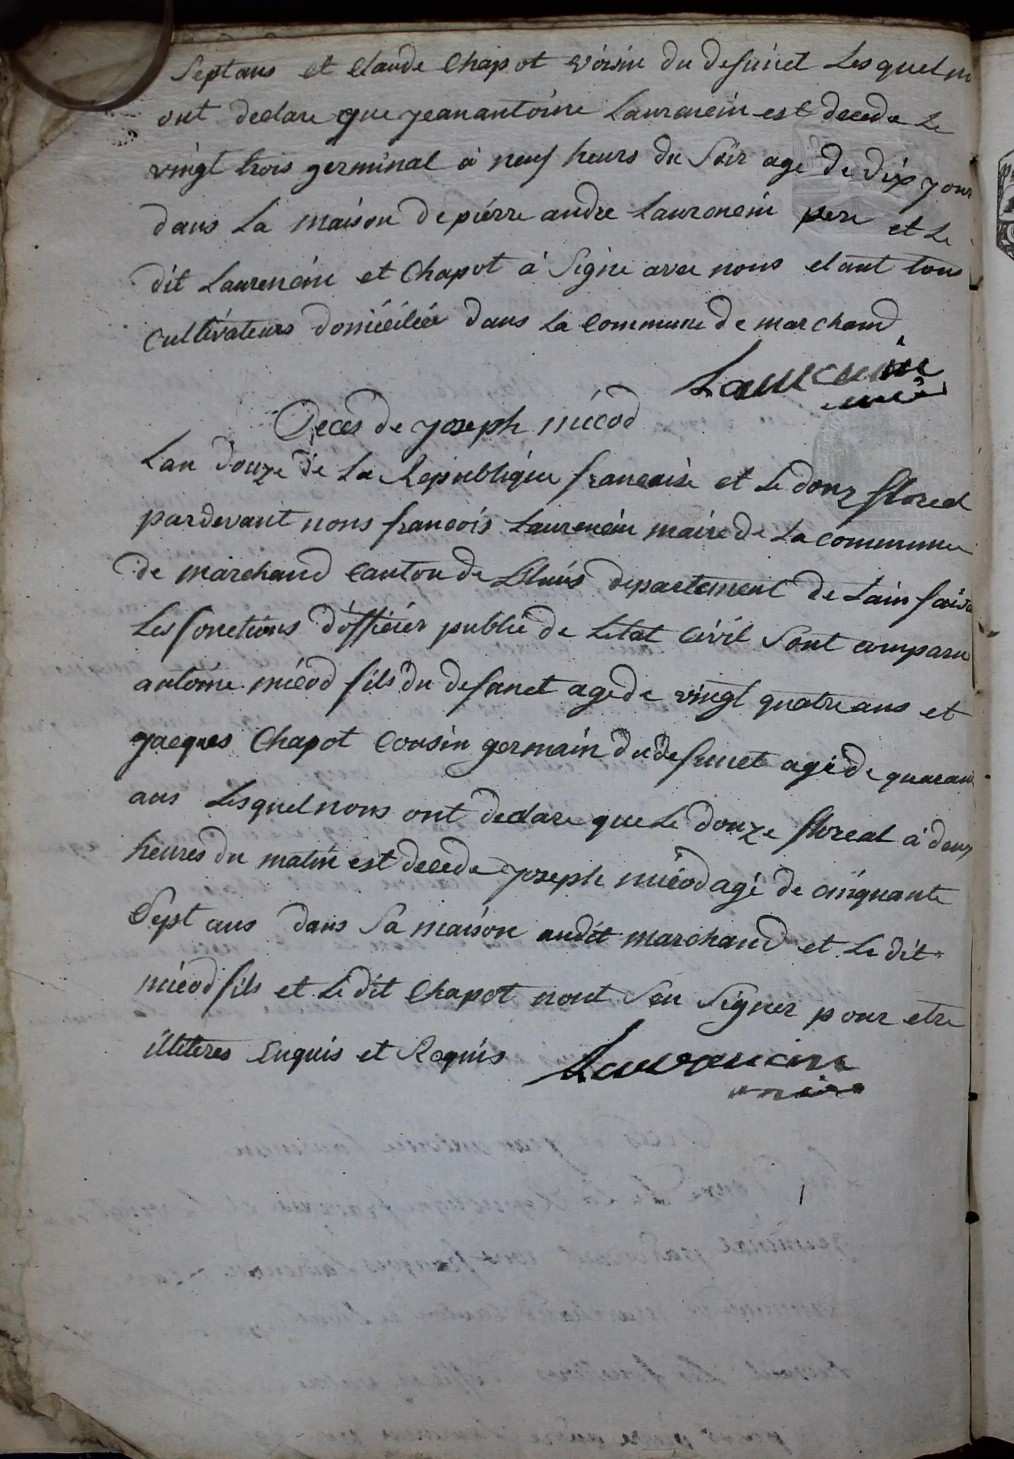 Septans et Claude Chapot voisin du defunct Lesquel n
ont declare que jean antoine Laurencin est decede Le
vingt trois germinal à neuf heurs du Soir age de dix jour
dans La maison de piérre andre Laurencin pere et Le
dit Laurencin et Chapot à Signe avec nous etant tous
Cultivateurs domiciliée dans La Commune de marchand
Laurencin
maire
Deces de joseph micod
Lan douze de La Republique francaise et Le douz floreal
pardevant nous francois Laurencin maire de La commune
de marchand Canton de departement de Lain faisa
Les fonctions d'officier public de Letat Civil Sont comparu
antoine micod fils du defunct age de vingt quatre ans et
jacques Chapot Cousin germain du defunct age de quaran
ans Lesquel nous ont declare que Le douze floreal à deux
heures du matin est decede joseph micod agé de cinquante
Sept ans dans Sa maison audit marchand et Le dit
micod fils et Le dit Chapot nont Seu Signer pour etre
illiteres Enquis et Requis
Laurencin
maire